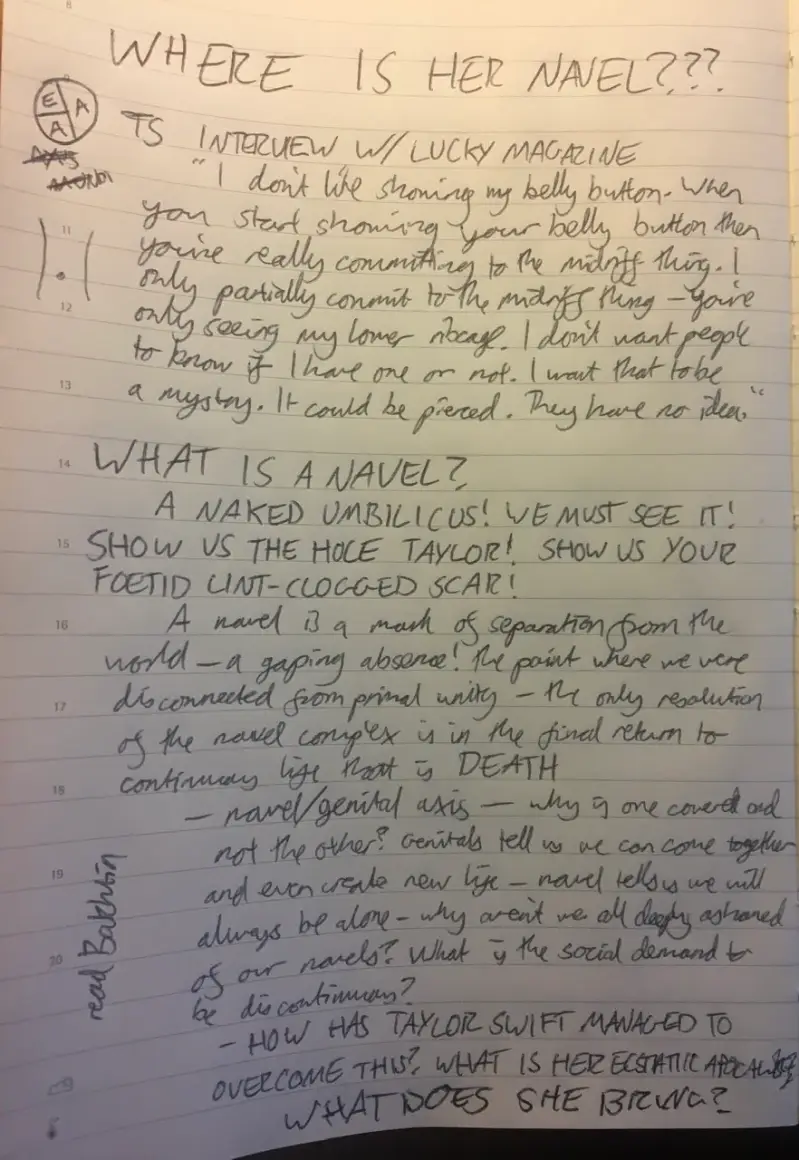 8
WHERE IS HER NAVEL???
E A
A
AXIS
MUNDI
TS INTERVIEW W/ LUCKY MAGAZINE
"I don't like showing my belly button. When
you start showing your belly button then
11
you're really committing to the midriff thing. I
only partially commit to the midriff thing – you're
12
only seeing my lower ribcage. I don't want people
to know if I have one or not. I want that to be
13
a mystery. It could be pierced. They have no idea."
14
WHAT IS A NAVEL?
A NAKED UMBILICUS! WE MUST SEE IT!
15
SHOW US THE HOLE TAYLOR! SHOW US YOUR
FOETID LINT-CLOGGED SCAR!
16
A navel is a mark of separation from the
world – a gaping absence! the point where we were
17
disconnected from primal unity – the only resolution
of the navel complex is in the final return to
18
continuous life that is DEATH
– navel/genital axis – why is one covered and
not the other? Genitals tell us we can come together
19
and even create new life – navel tells us we will
always be alone – why aren't we all deeply ashamed
20
of our navels? What is the social demand to
be discontinuous?
read Bakhtin
– HOW HAS TAYLOR SWIFT MANAGED TO
OVERCOME THIS? WHAT IS HER ECSTATIC APOCALYPSE?
WHAT DOES SHE BRING?